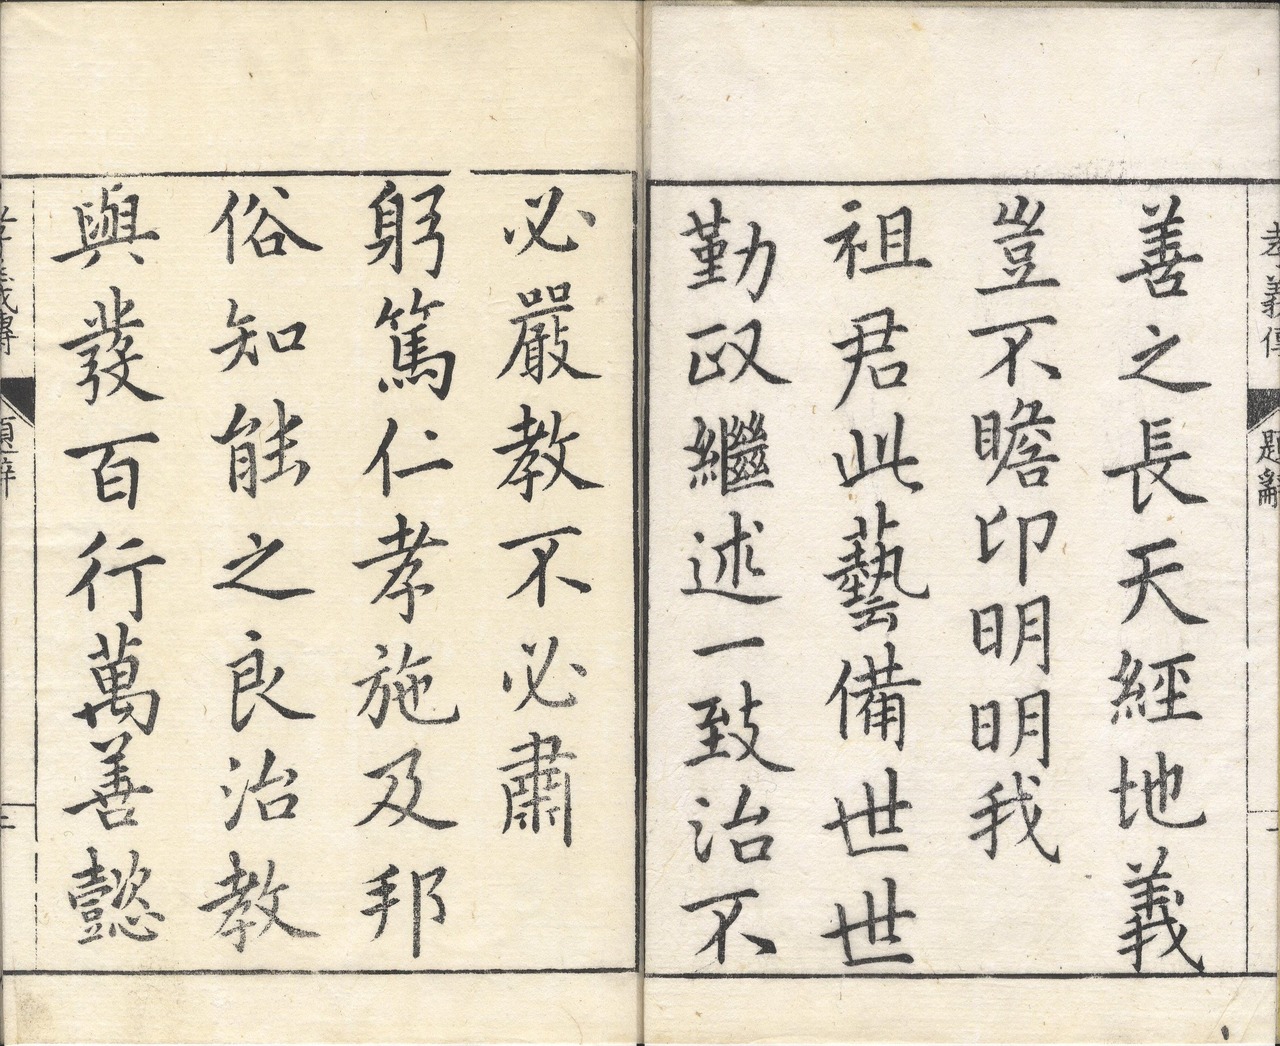 孝義傳
題辭
善之長天經地義
豈不瞻卬明明我
祖君此藝備世世
勤政繼述一致治不
必嚴教不必肅
躬篤仁孝施及邦
俗知能之良治教
與發百行萬善懿
孝義傳
題辭